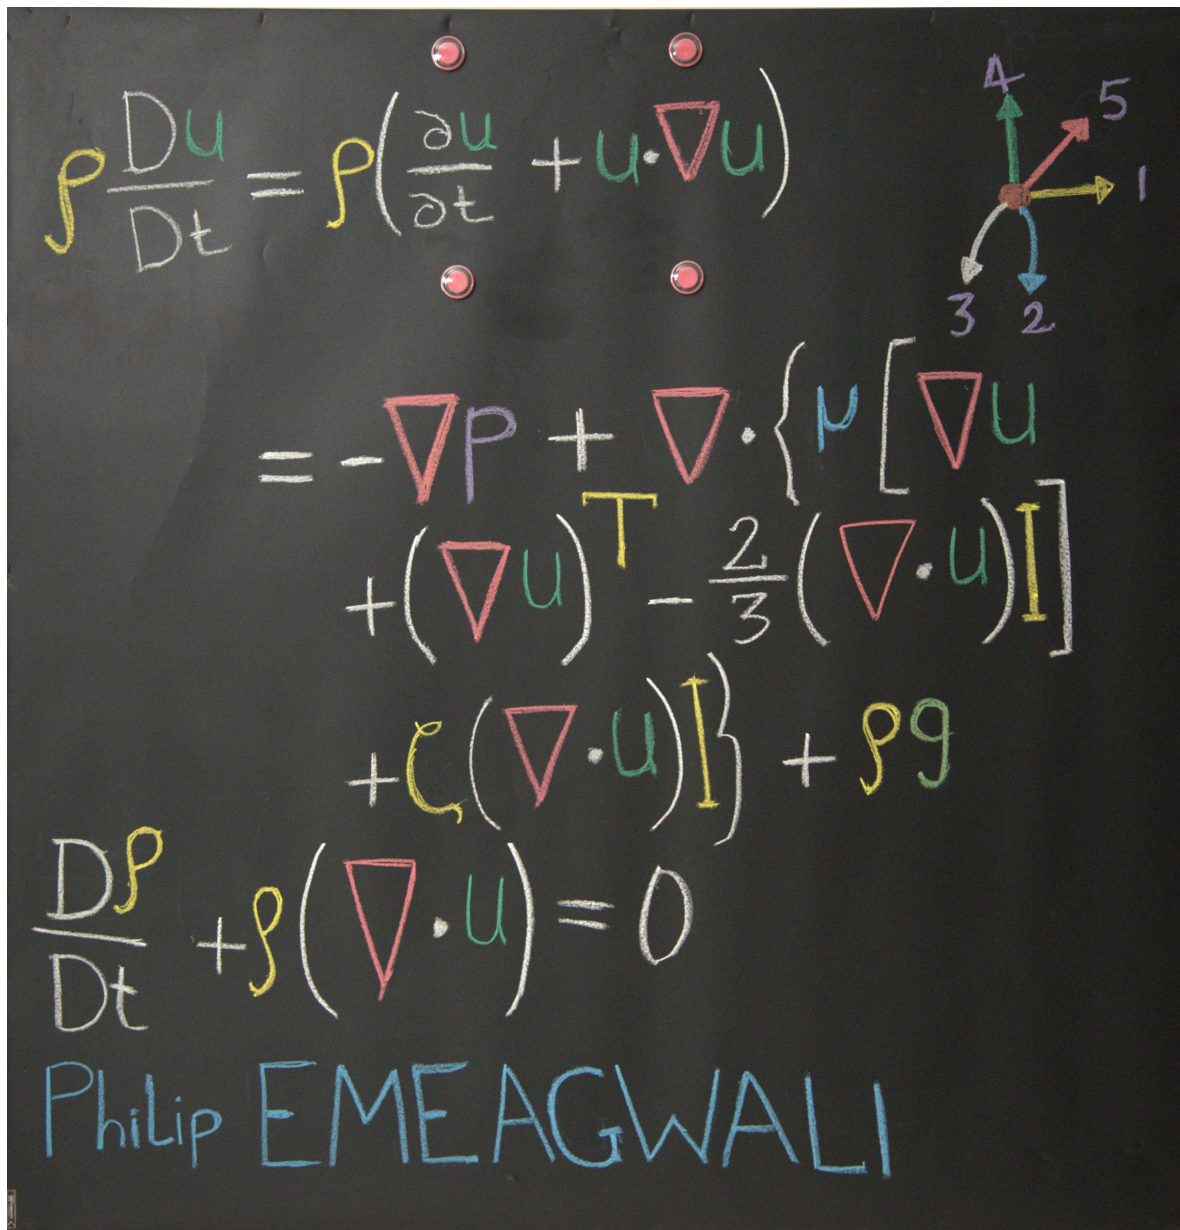 ρ Du/Dt = ρ(∂u/∂t + u·∇u)
4
5
1
3 2
= -∇p + ∇·{μ[∇u
+(∇u)ᵀ - 2/3(∇·u)I]
+ζ(∇·u)I} + ρg
Dρ/Dt + ρ(∇·u) = 0
PhiLip EMEAGWALI